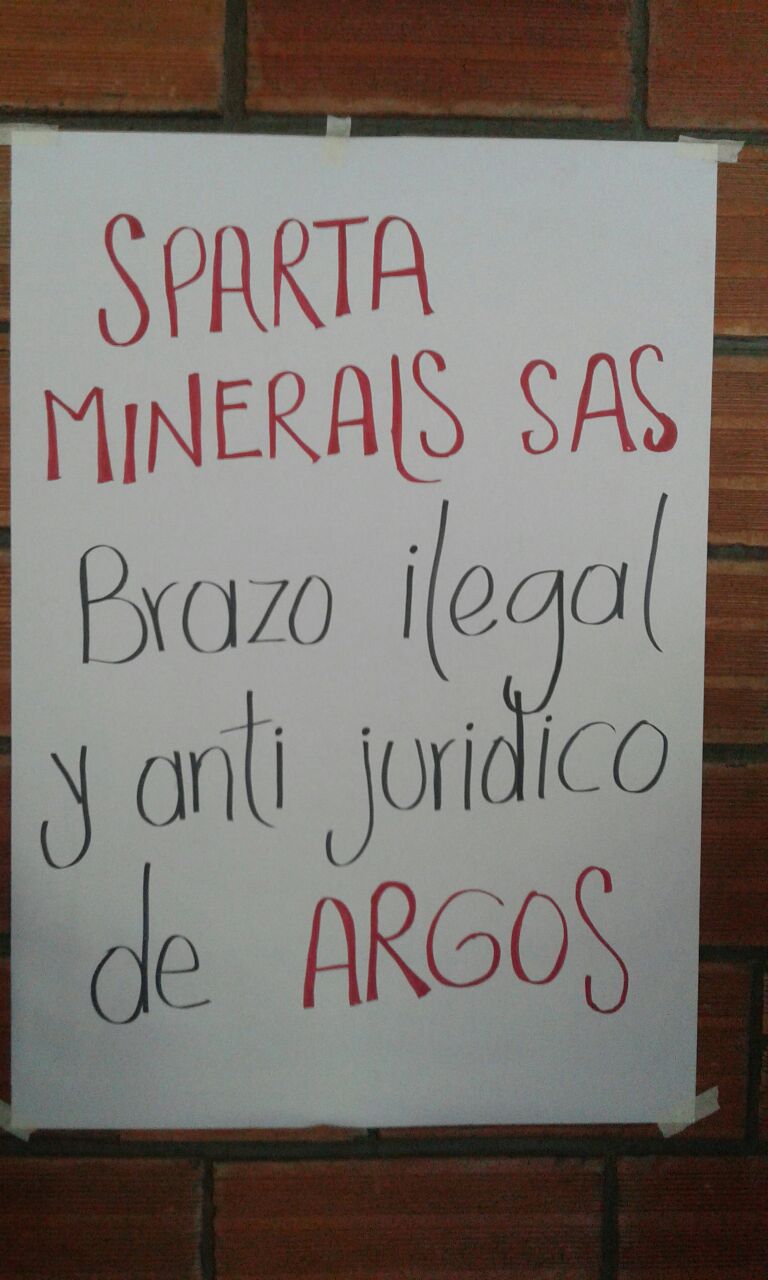 SPARTA
MINERALS SAS
Brazo ilegal
y anti juridico
de ARGOS